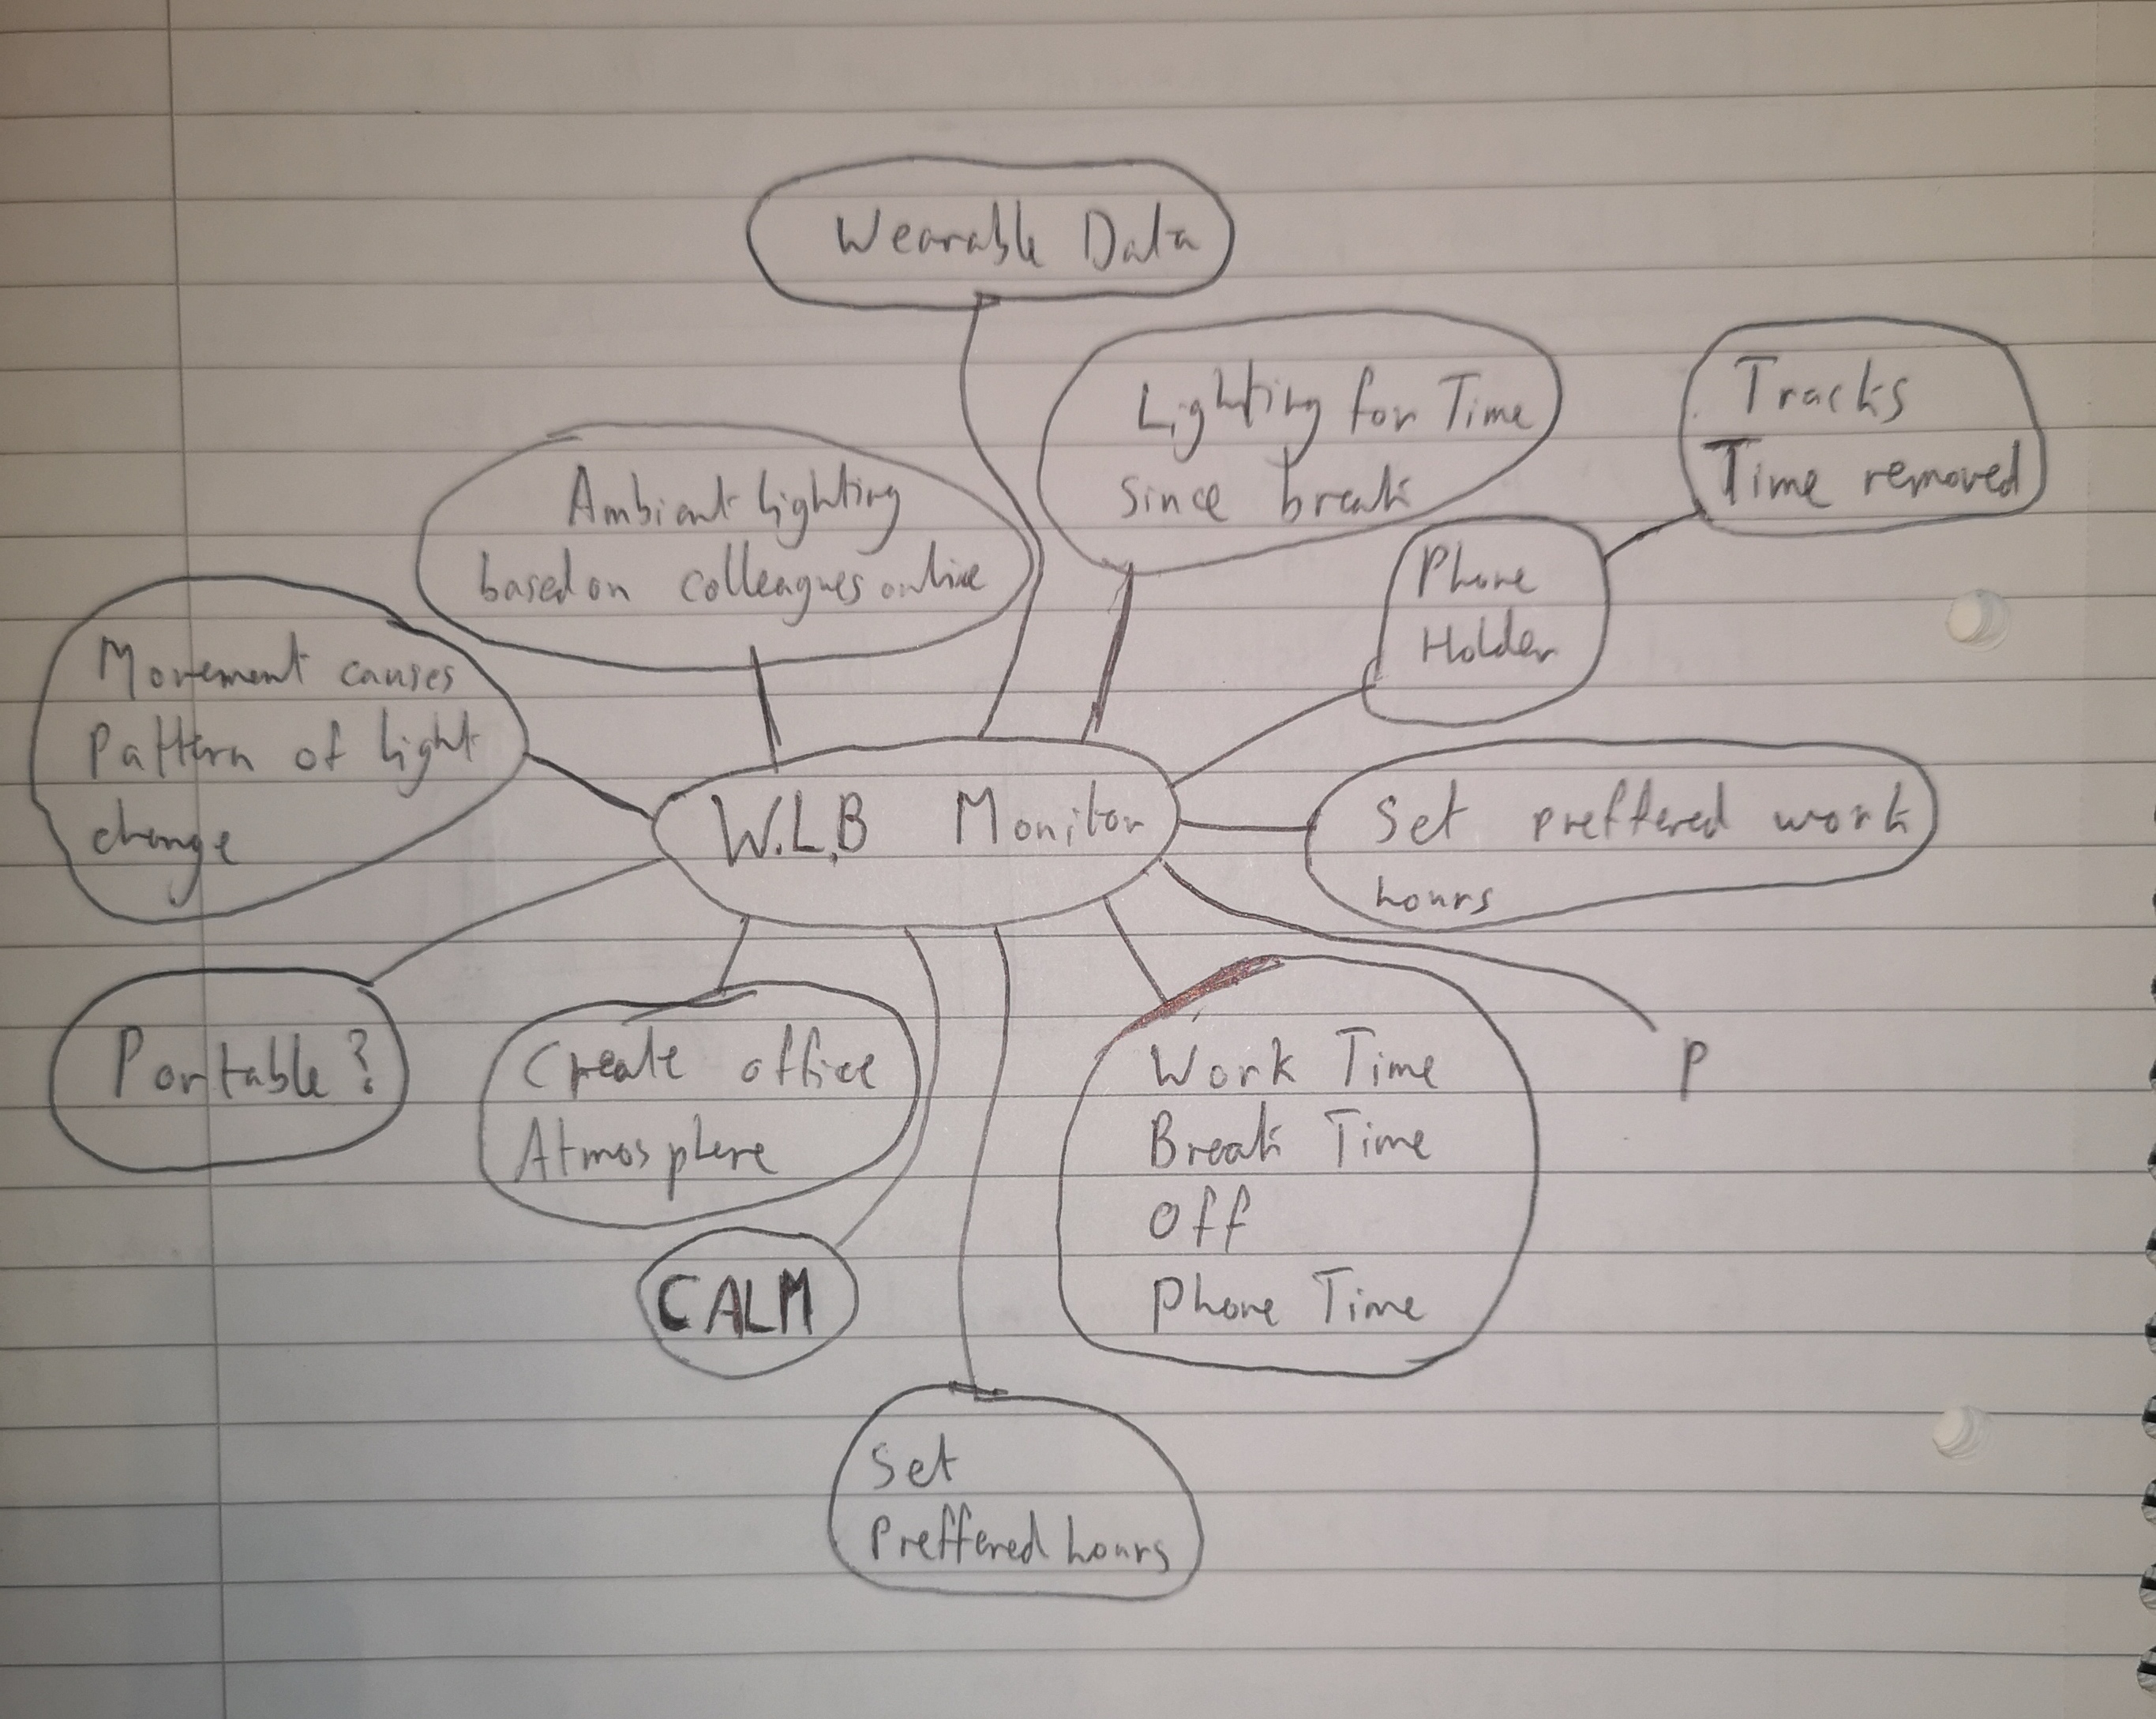 Wearable Data
Lighting for Time
since break
Tracks
Time removed
Ambient lighting
based on colleagues online
Phone
Holder
Movement causes
Pattern of light
change
W.L.B Monitor
Set preffered work
hours
Portable?
Create office
Atmosphere
Work Time
Break Time
Off
Phone Time
P
CALM
Set
Preffered hours